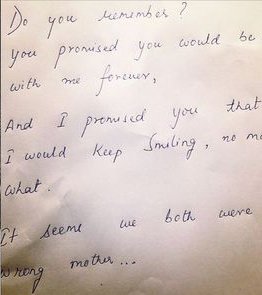 Do you remember?
You promised you would be
with me forever,
And I promised you that
I would keep smiling, no
what.
It seems we both were
wrong mother...